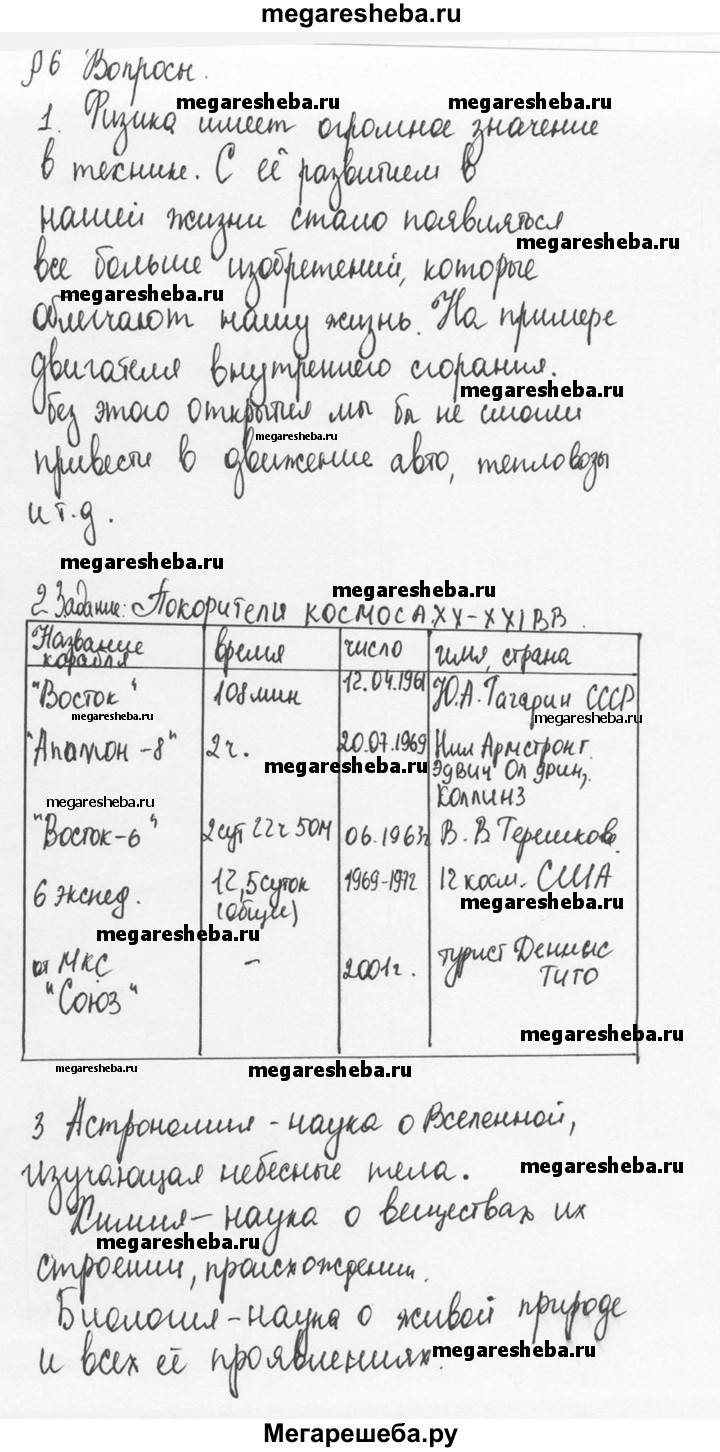 megaresheba.ru
§6 Вопросы.
megaresheba.ru
1. Физика имеет огромное значение
в технике. С её развитием в
нашей жизни стало появляться
megaresheba.ru
все больше изобретений, которые
megaresheba.ru
облегчают нашу жизнь. На примере
двигателя внутреннего сгорания.
megaresheba.ru
без этого открытия мы бы не смогли
megaresheba.ru
привести в движение авто, тепловозы
и т.д.
megaresheba.ru
megaresheba.ru
2 Задание: Покорители космоса XX-XXI вв.
Название корабля | время | число | имя, страна
"Восток" | 108 мин | 12.04.1961 | Ю.А. Гагарин СССР
megaresheba.ru megaresheba.ru
"Апамон-8" | 2ч. | 20.07.1969 | Нил Армстронг.
megaresheba.ru
Эдвич Олдрин,
Коллинз
megaresheba.ru
"Восток-6" | 2сут 22ч 50м | 06.1963г | В.В. Терешкова.
6 экспед. | 12,5 суток | 1969-1972 | 12 косм. США
(общие)
megaresheba.ru
megaresheba.ru
от МКС | - | 2001г. | турист Деннис
"Союз" | Тито
megaresheba.ru
megaresheba.ru megaresheba.ru
3 Астрономия - наука о Вселенной,
изучающая небесные тела.
megaresheba.ru
Химия - наука о веществах их
megaresheba.ru
строении, происхождении.
Биология - наука о живой природе
и всех её проявлениях.
megaresheba.ru
Мегарешеба.ру